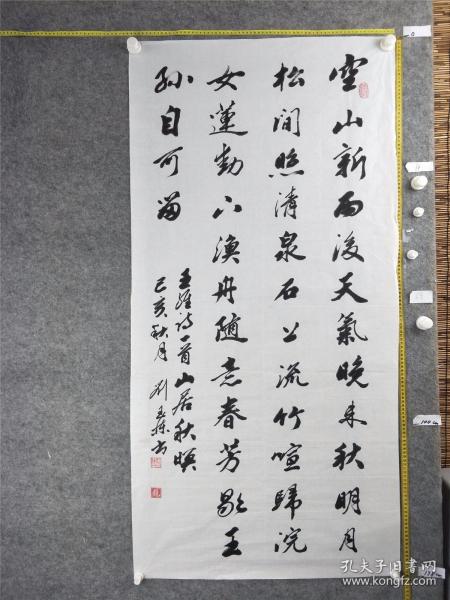 空山新雨後天氣晚来秋明月
松间照清泉石上流竹喧歸浣
女蓮動下渔舟随意春芳歇王
孙自可留
王維诗一首山居秋暝
己亥秋月 刘玉 书
孔夫子旧书网
www.kongfz.com